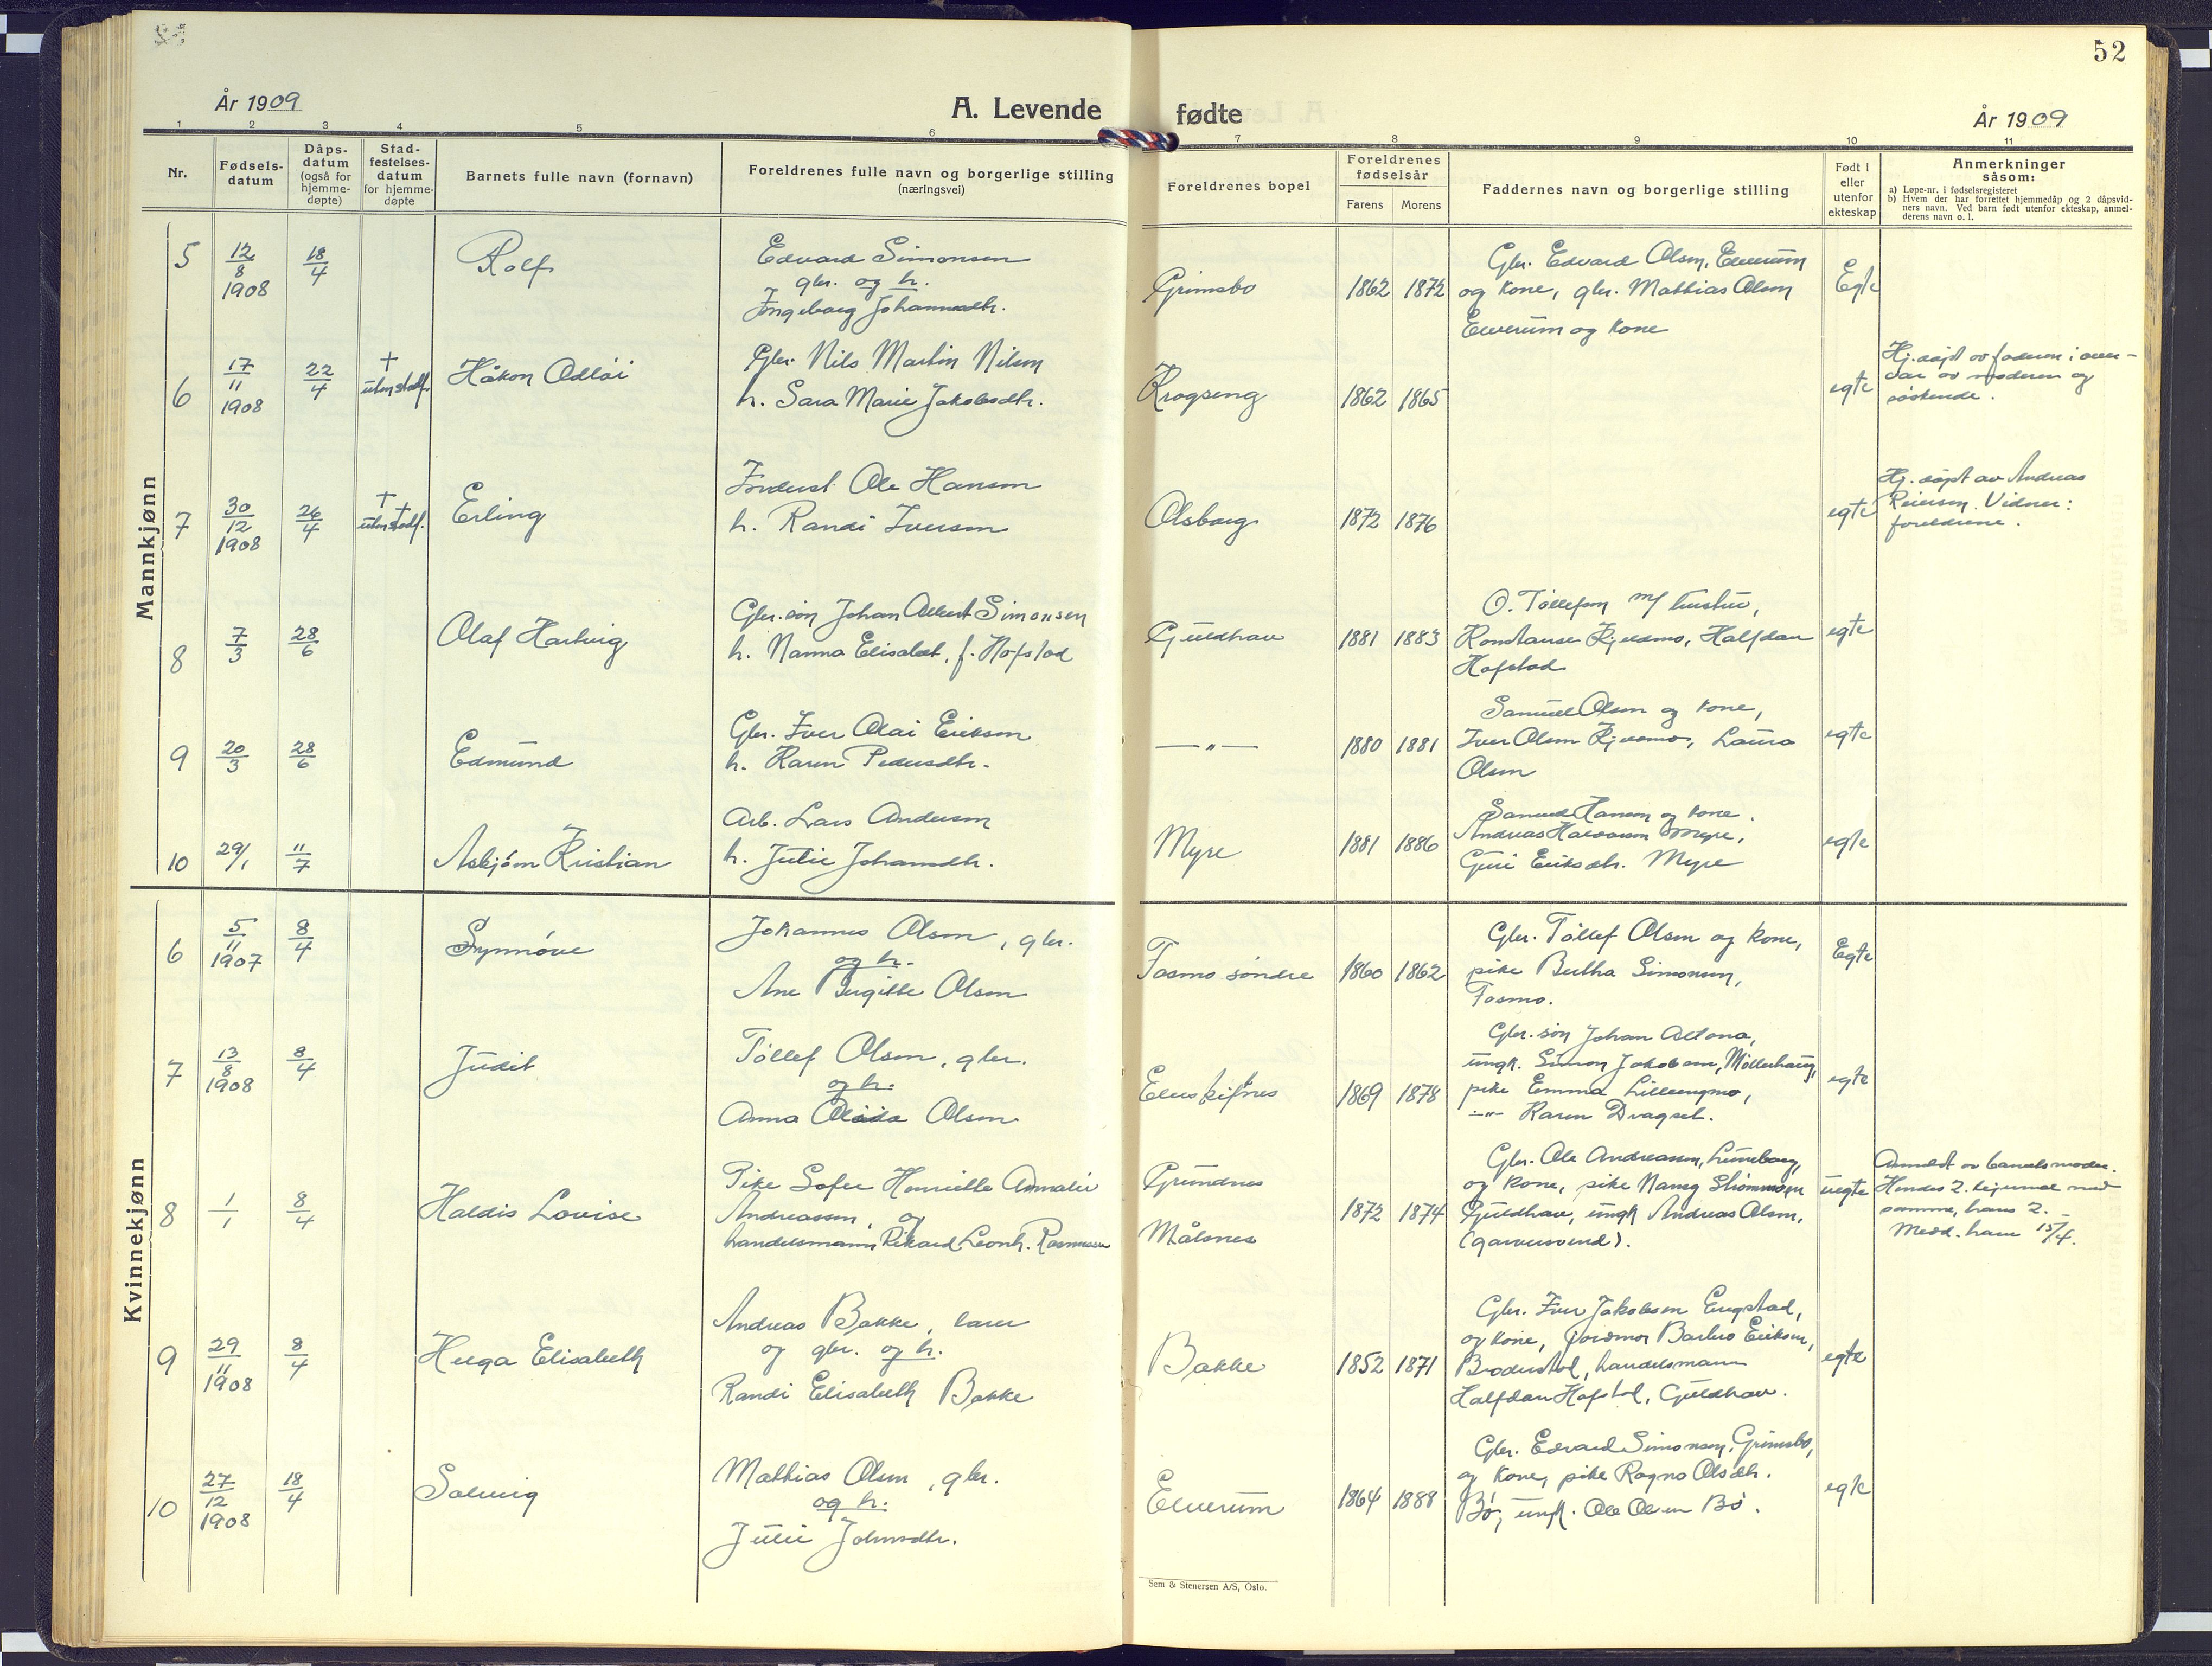 52
År 1909
A. Levende fødte
År 1909
1 2 3 4 5 6 7 8 9 10 11
Nr.
Fødsels-
datum
Dåps-
datum
(også for
hjemme-
døpte)
Stad-
festelses-
datum
for hjemme-
døpte
Barnets fulle navn (fornavn)
Foreldrenes fulle navn og borgerlige stilling
(næringsvei)
Foreldrenes bopel
Foreldrenes
fødselsår
Farens Morens
Faddernes navn og borgerlige stilling
Født i
eller
utenfor
ekteskap
Anmerkninger
såsom:
a) Løpe-nr. i fødselsregisteret
b) Hvem der har forrettet hjemmedåp og 2 dåpsvid-
ners navn. Ved barn født utenfor ekteskap, anmel-
derens navn o. l.
Mannkjønn
5
12/8
1908
18/4
Rolf
Edvard Simonsen
gbr. og h.
Ingeborg Johannesdtr.
Grimsbo
1862 1872
Gbr. Edvard Olsen, Elverum
og kone, gbr. Mathias Olsen
Elverum og kone
Egte
6
17/11
1908
22/4
†
uten stadf.
Håkon Odlöi
Gbr. Nils Martin Nilsen
h. Sara Marie Jakobsdtr.
Krogseng
1862 1865
egte
Hj. døpt av faderen i over-
vær av moderen og
søskende.
7
30/12
1908
26/4
†
uten stadf.
Erling
Inderst Ole Hansen
h. Randi Iversen
Olsborg
1872 1876
egte
Hj. døpt av Andreas
Reiersen. Vidner:
foreldrene.
8
7/3
28/6
Olaf Hartvig
Gbr. søn Johan Albert Simonsen
h. Nanna Elisabet, f. Hofstad
Guldhav
1881 1883
O. Töllefsen m/ hustru,
Konstanse Kjeldmo, Halfdan
Hofstad
egte
9
20/3
28/6
Edmund
Gbr. Iver Olai Eriksen
h. Karen Pedersdtr.
— „ —
1880 1881
Samuel Olsen og kone,
Iver Olsen, Laura
Olsen
egte
10
29/1
11/7
Asbjörn Kristian
Arb. Lars Andersen
h. Julie Johansdtr.
Myre
1881 1886
Samuel Hansen og kone.
Andreas Halvorsen Myre,
Guri Eriksdtr. Myre
egte
Kvinnekjønn
6
5/11
1907
8/4
Synnöve
Johannes Olsen, gbr.
og h.
Ane Birgitte Olsen
Fosmo söndre
1860 1862
Gbr. Töllef Olsen og kone,
pike Bertha Simonsen,
Fosmo.
Egte
7
13/8
1908
8/4
Judit
Töllef Olsen, gbr.
og h.
Anna Olaida Olsen
Elvskiftnes
1869 1878
Gbr. søn Johan Altona,
ungk. Simon Jakobsen, Möllerhaug,
pike Emma Lillengmo,
—„— Karen Dragset.
egte
8
1/1
8/4
Haldis Lovise
Pike Sofie Henriette Annalie
Andreassen, og
handelsmann Rikard Leonh. Rasmussen
Grundnes
Målsnes
1872 1874
Gbr. Ole Andreassen, Luneborg,
og kone, pike Nanny Strømmosen
Guldhav, ungk Andreas Olsen,
(garversvend).
uegte
Anmeldt av barnets moder.
Hendes 2. leiermål med
samme, hans 2.
Medd. ham 15/4.
9
29/11
1908
8/4
Helga Elisabeth
Andreas Bakke, lærer
og gbr. og h.
Randi Elisabeth Bakke
Bakke
1852 1871
Gbr. Iver Jakobsen Engstad,
og kone, jordmor Barbro Eriksen,
handelsmann
Halfdan Hofstad, Guldhav.
egte
10
27/12
1908
18/4
Solveig
Mathias Olsen, gbr.
og h.
Julie Johnsdtr.
Elverum
1864 1888
Gbr. Edvard Simonsen, Grimsbo,
og kone, pike Ragna Olsdtr.
Bö, ungk. Ole Olsen Bö.
egte
Sem & Stenersen A/S, Oslo.